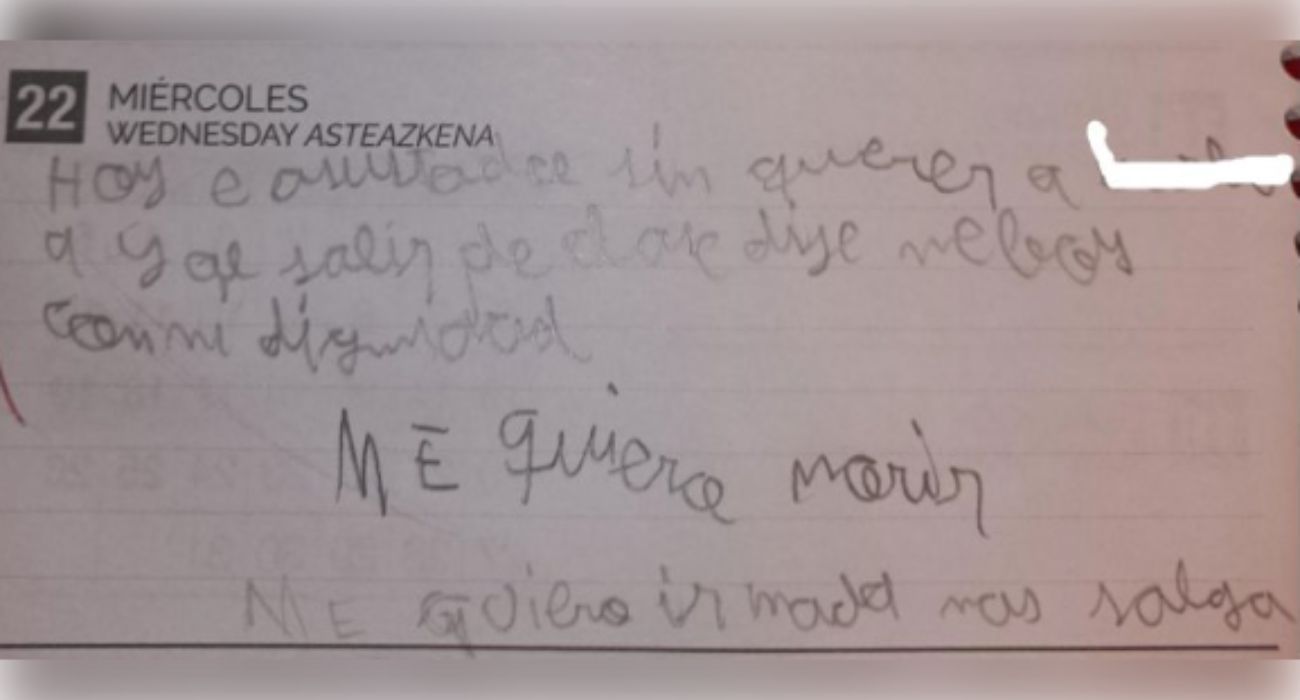 22 MIÉRCOLES
WEDNESDAY ASTEAZKENA
HOY e asustad sin querer a
a y qe salir de dije me boy
con mi dignidad
ME quiero morir
ME quiero ir nada mas salga